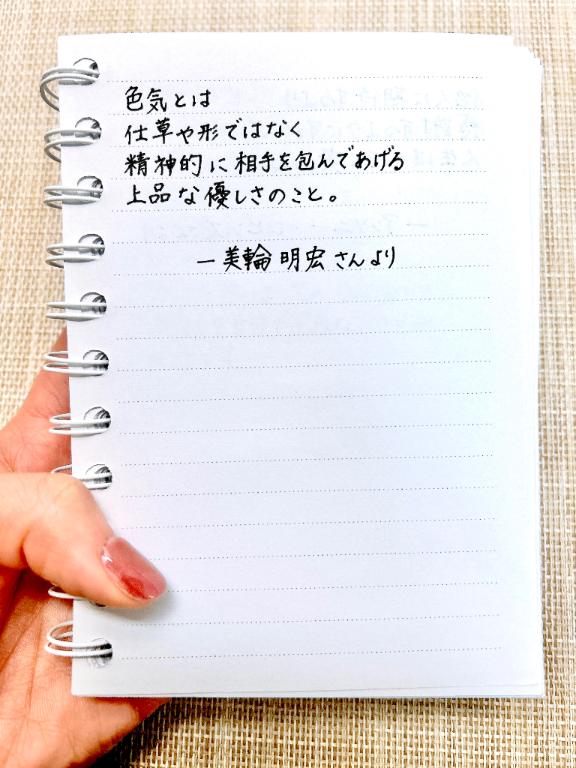 色気とは
仕草や形ではなく
精神的に相手を包んであげる
上品な優しさのこと。
—美輪明宏さんより